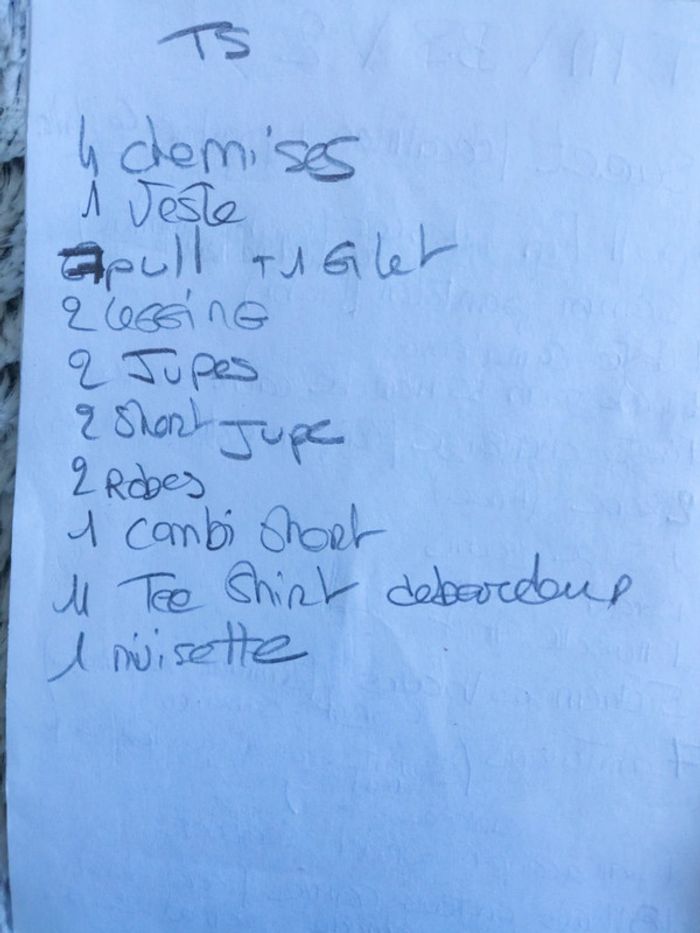 TS
4 chemises
1 Veste
pull + 1 Gilet
2 LeGGinG
2 Jupes
2 Short Jupe
2 Robes
1 combi short
11 Tee Shirt debardeur
1 nuisette